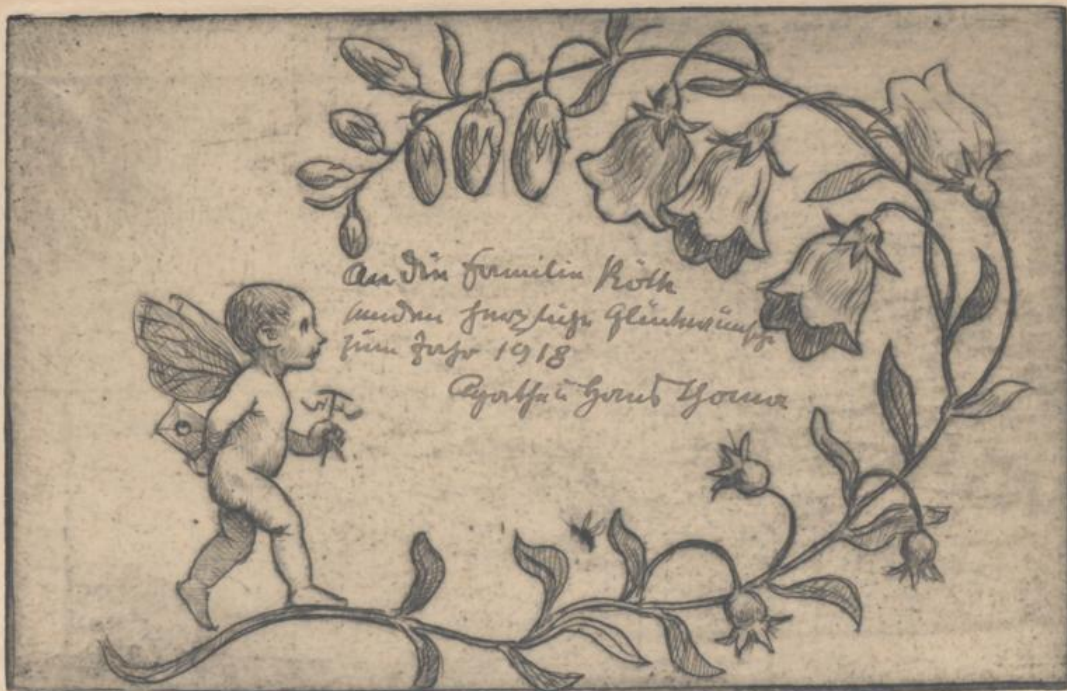 An die Familie Röth
senden herzliche Glückwünsche
zum Jahr 1918
Agathe u Hans Thoma